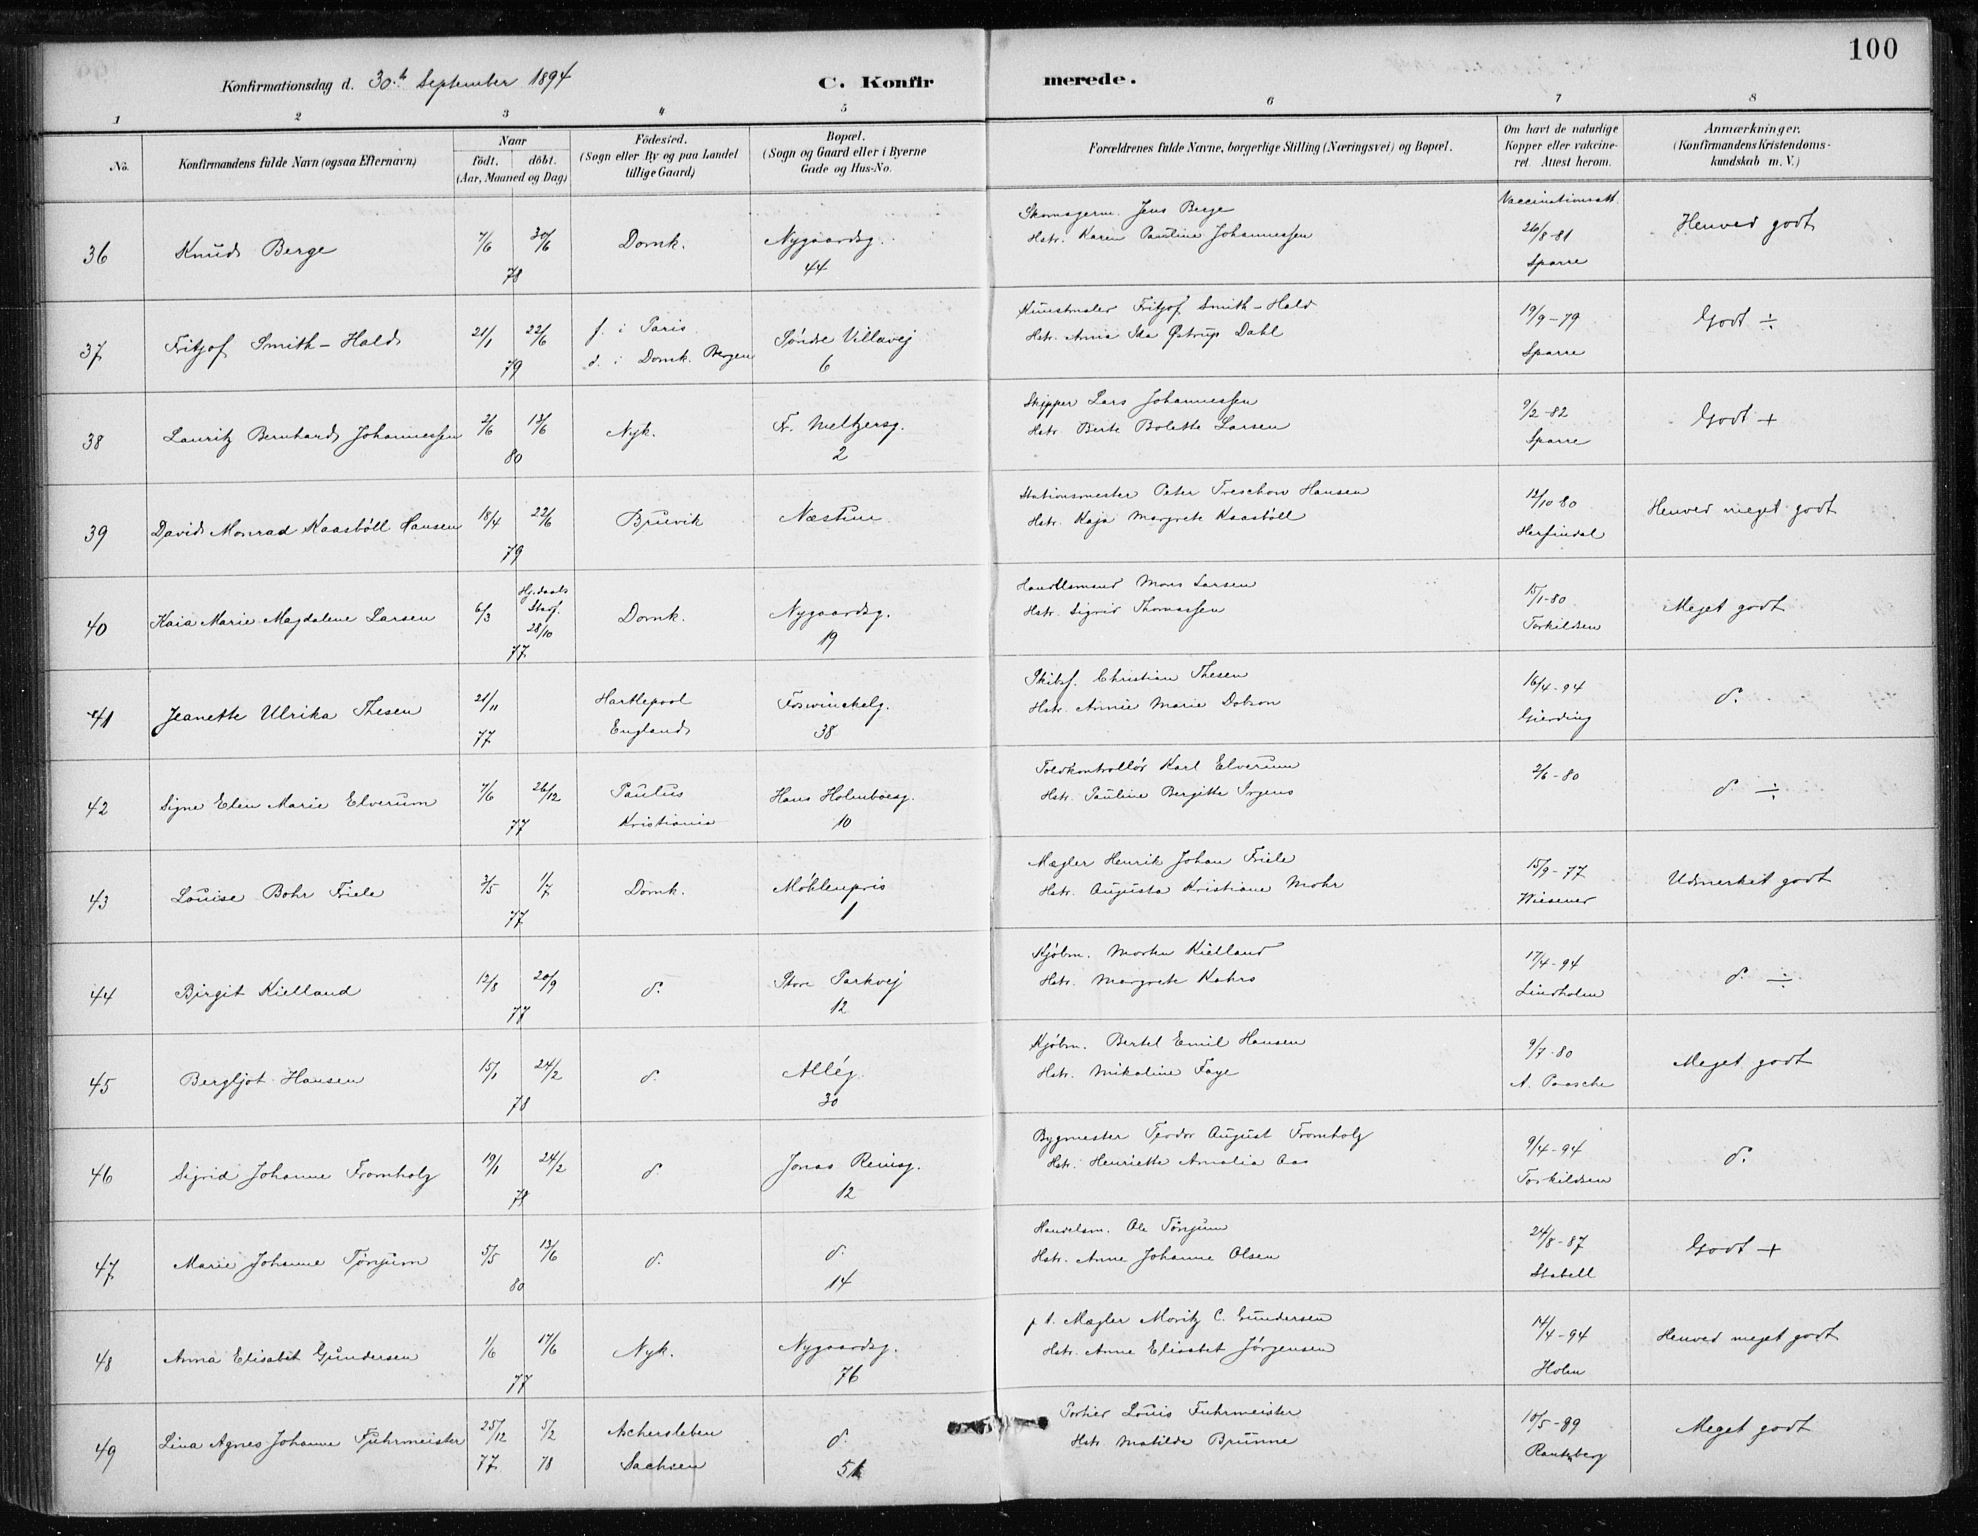 100
Konfirmationsdag d. 30.th September 1894
C. Konfirmerede.
1 2 3 4 5 6 7 8
No.
Konfirmandens fulde Navn (ogsaa Efternavn)
Naar
födt. döbt.
(Aar, Maaned og Dag)
Födested.
(Sogn eller By og paa Landet
tillige Gaard)
Bopæl.
(Sogn og Gaard eller i Byerne
Gade og Hus-No.
Forældrenes fulde Navne, borgerlige Stilling (Næringsvei) og Bopæl.
Om havt de naturlige
Kopper eller vakcine-
ret. Attest herom.
Anmærkninger.
(Konfirmandens Kristendoms-
kundskab m. V.)
36 Knud Berge 7/6 30/6 78 Domk. Nygaardsg. 44
Skomagerm. Jens Berge
Hstr. Karen Pauline Johannessen
Vaccinationsatt. 26/8-81 Sparre
Henved godt
37 Fritjof Smith-Hald 21/1 22/6 79
f. i Paris
d. i Domk. Bergen
Søndre Villavej 6
Kunstmaler Fritjof Smith-Hald
Hstr. Anna Ida Østrup Dahl
19/9-79 Sparre
Godt ÷
38 Lauritz Bernhard Johannessen 2/6 13/6 80 Nyk. Fr. Meltzersg. 2
Skipper Lars Johannessen
Hstr. Berte Bolette Larsen
9/2-82 Sparre
Godt +
39 David Monrad Kaasböll Hansen 18/4 22/6 79 Bruvik Næstun
Stationsmester Peter Treschow Hansen
Hstr. Kaja Margrete Kaasböll
12/10 80 Herfindal
Henved meget godt
40 Kaia Marie Magdalene Larsen 6/3 28/10 77 Domk. Nygaardsg. 19
Handelsmand Mons Larsen
Hstr. Sigrid Thomassen
15/1-80 Torkildsen
Meget godt
41 Jeanette Ulrika Thesen 21/11 77
Hartlepool
England
Foswinckelg. 38
Skibsf. Christian Thesen
Hstr. Annie Marie Dobson
16/4-94 Gierding
d.
42 Signe Elen Marie Elverum 7/6 26/12 77
Paulus
Kristiania
Hans Holmboesg. 10
Toldkontrollör Karl Elverum
Hstr. Pauline Bergitte Irgens
2/6-80
d. ÷
43 Louise Bohr Friele 3/5 1/7 77 Domk. Møhlenpris 1
Mægler Henrik Johan Friele
Hstr. Augusta Kristiane Mohr
15/9-77 Wiesener
Udmerket godt
44 Birgit Kielland 12/8 20/9 77 d. Store Parkvej 12
Kjøbm. Morten Kielland
Hstr. Margrete Kahrs
17/4-94 Lindholm
d. ÷
45 Bergljot Hansen 15/1 24/2 78 d. Allég. 30
Kjøbm. Bertel Emil Hansen
Hstr. Mikaline Faye
9/7-80 A. Paasche
Meget godt
46 Sigrid Johanne Fromholz 19/1 24/2 78 d. Jonas Reinsg. 12
Bygmester Teodor August Fromholz
Hstr. Henriette Amalia Aas
9/4-94 Torkildsen
d.
47 Marie Johanne Tønjum 5/5 13/6 80 d. d. 14
Handelsm. Ole Tønjum
Hstr. Anne Johanne Olsen
24/8-87 Stabell
Godt +
48 Anna Elisabet Gundersen 1/6 17/6 77 Nyk. Nygaardsg. 76
p.t. Mægler Moritz C. Gundersen
Hstr. Anne Elisabet Jørgensen
14/4-94 Holm
Henved meget godt
49 Lina Agnes Johanne Fuhrmeister 25/12 77 5/2 78
Achersleben
Sachsen
d. 51
Portier Louis Fuhrmeister
Hstr. Matilde Brunne
10/5-89
Meget godt